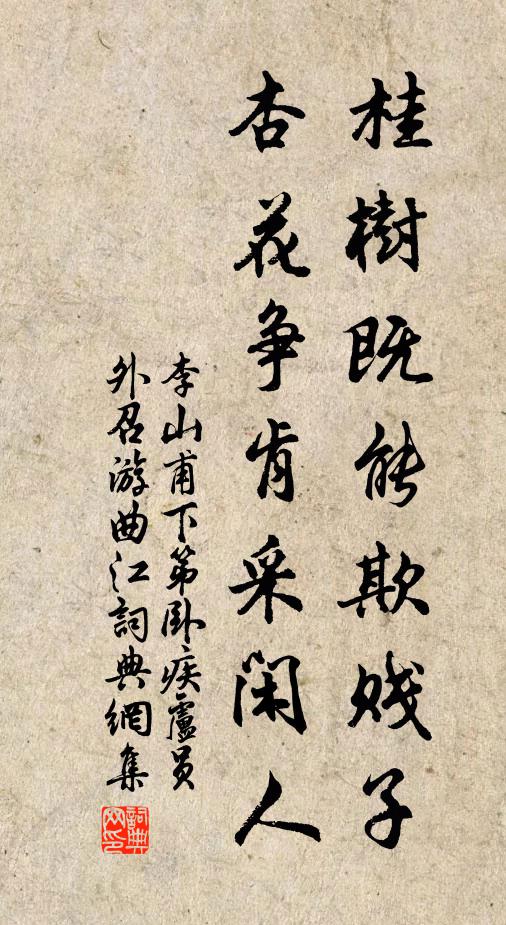 桂樹既能欺賤子
杏花争肯采閑人
李山甫下第卧疾盧員
外召游曲江詞典網集
詞典网印